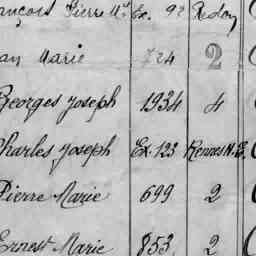 ançois Pierre Mie Ex. 92 Redon
an Marie 724 2
Georges Joseph 1934 4
Charles Joseph Ex. 123 Rennes N.E.
Pierre Marie 699 2
Ernest Marie 853 2